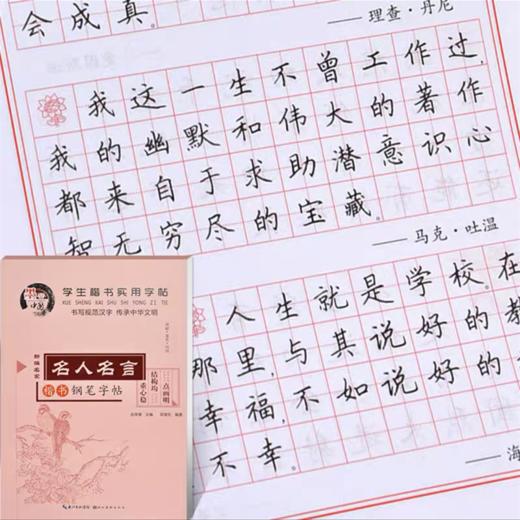 会成真。
——理查·丹尼
我这一生不曾工作过,
我的幽默和伟大的著作
都来自于求助潜意识心
智无穷尽的宝藏。
——马克·吐温
人生就是学校。在
那里,与其说好的教
幸福,不如说好的
不幸。
——海
学生楷书实用字帖
XUE SHENG KAI SHU SHI YONG ZI TIE
书写规范汉字 传承中华文明
名人名言
楷书钢笔字帖
结构均
重心稳
点画明